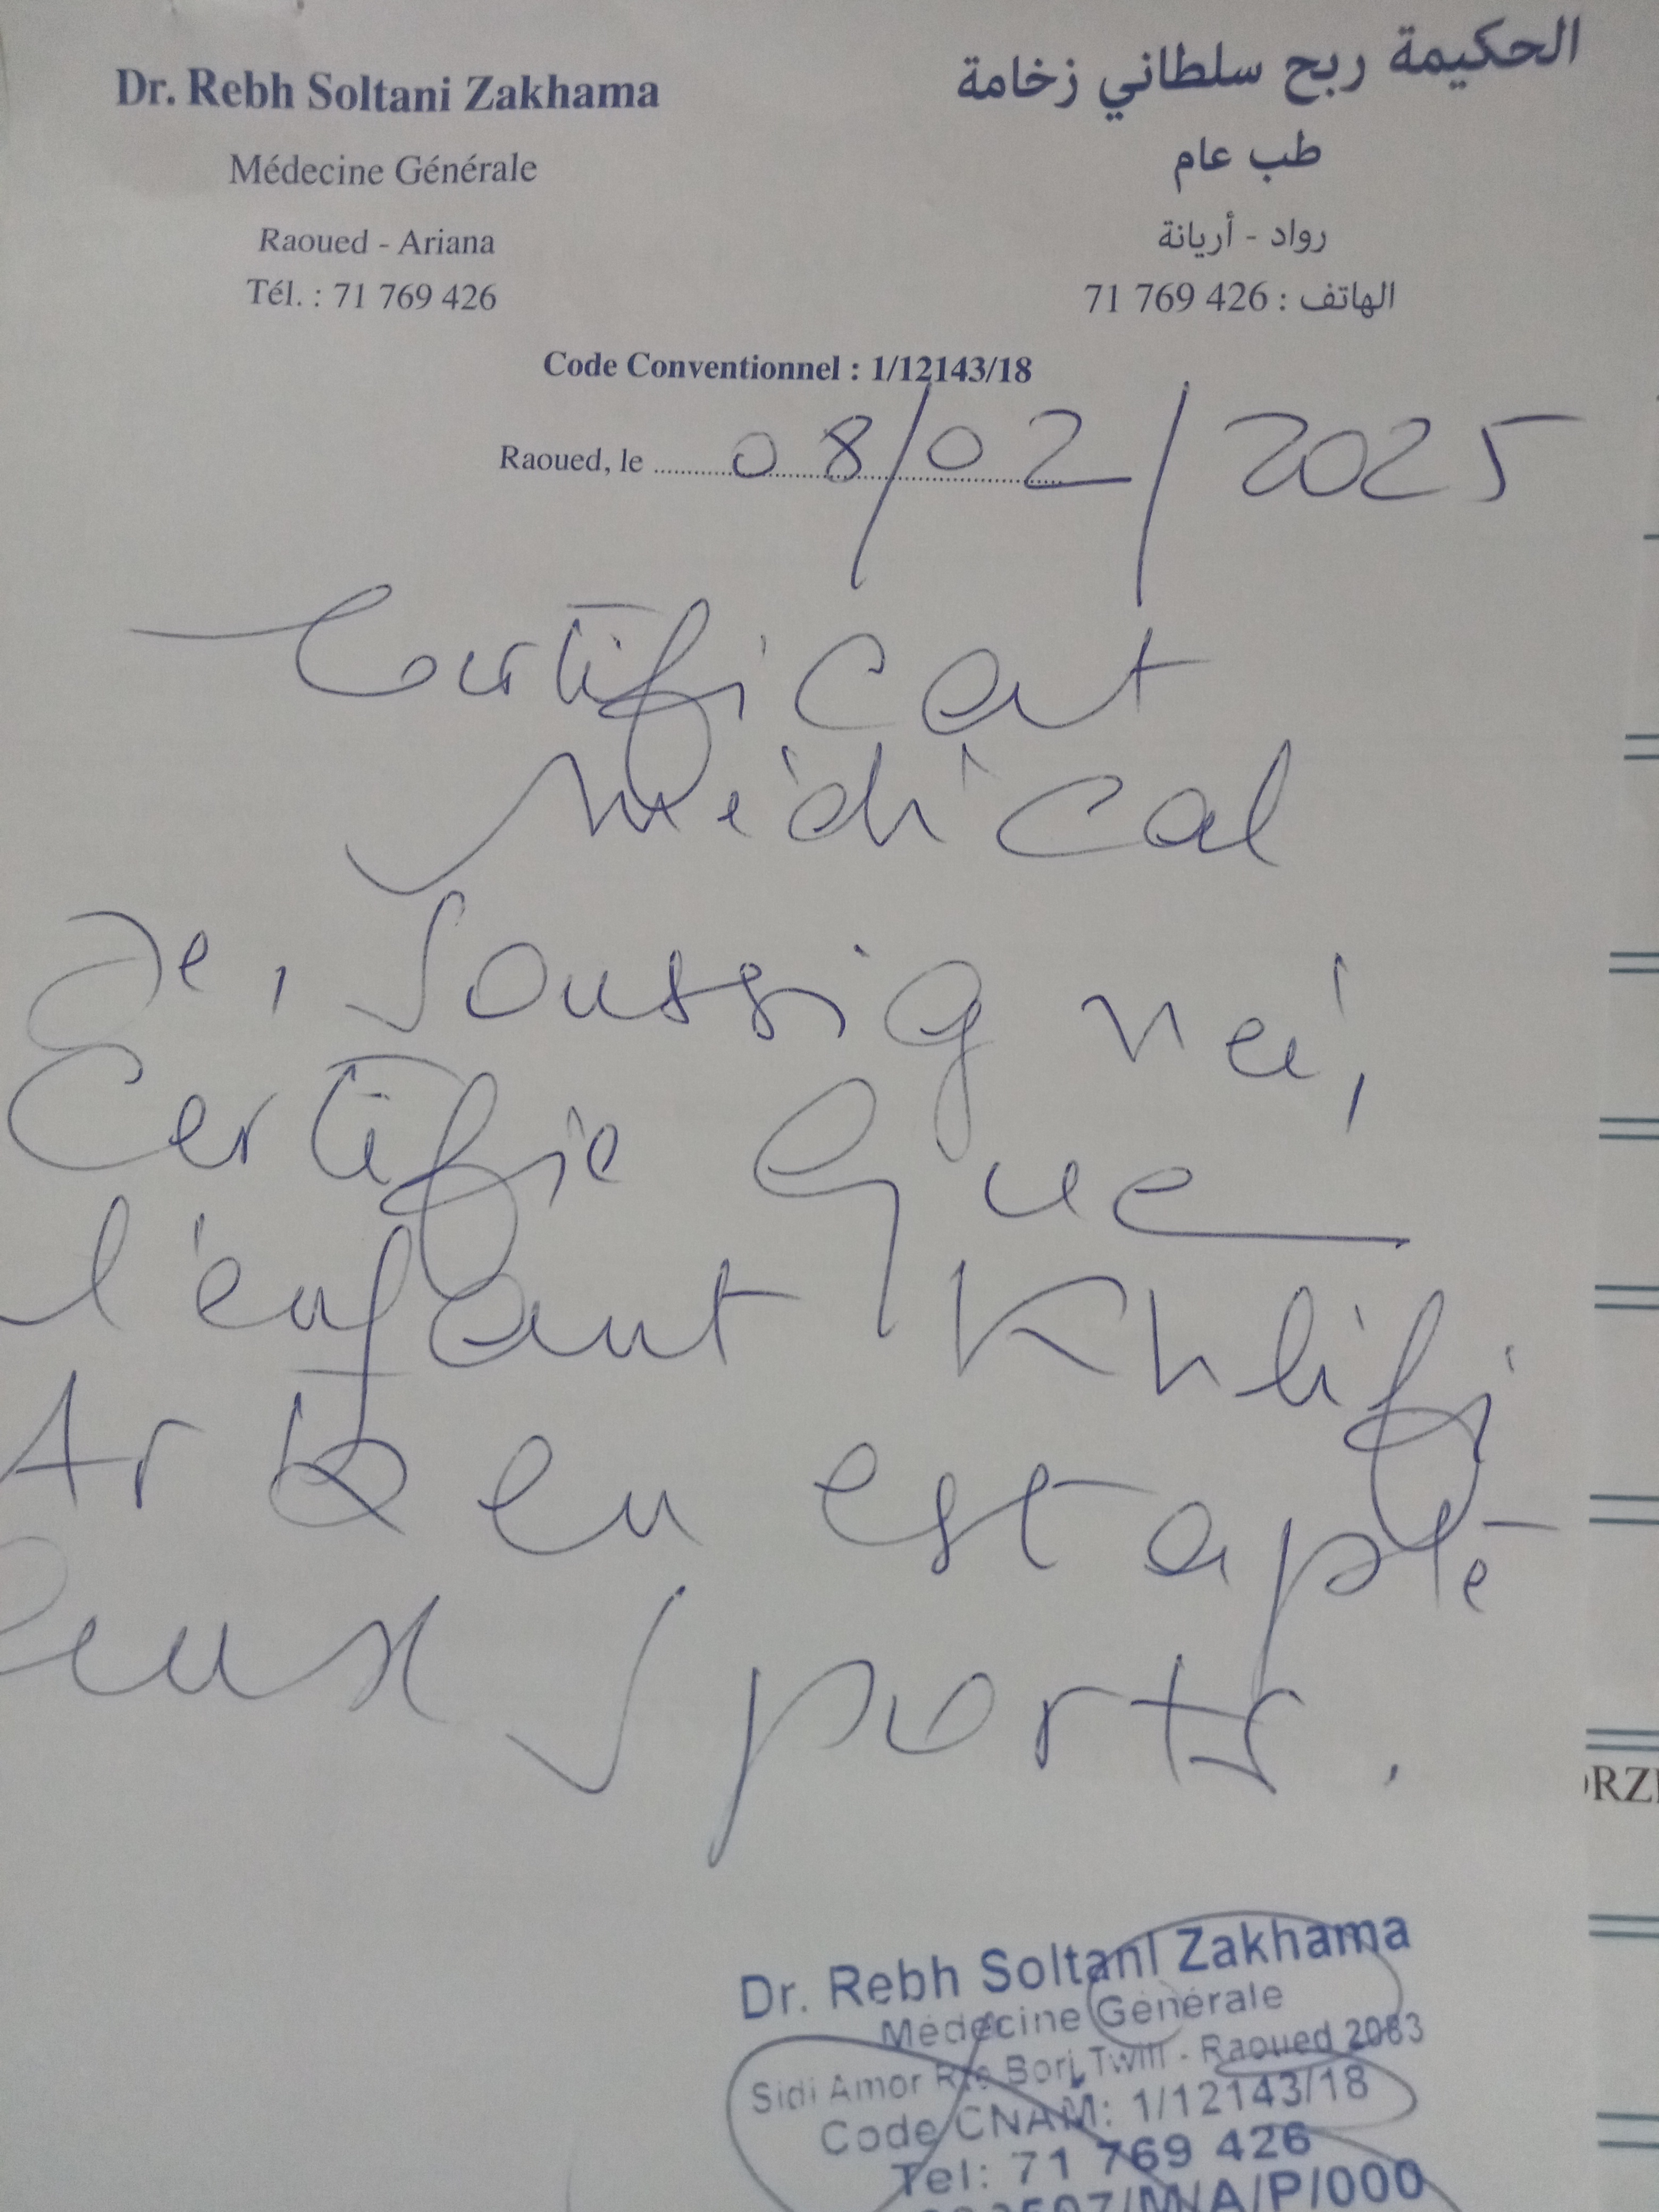 Dr. Rebh Soltani Zakhama
Médecine Générale
Raoued - Ariana
Tél. : 71 769 426
الحكيمة ربح سلطاني زخامة
طب عام
رواد - أريانة
الهاتف : 426 769 71
Code Conventionnel : 1/12143/18
Raoued, le 08/02/2025
Certificat
Médical
Je, Soussigné,
Certifie que
l'enfant Khlifi
est apte
aux sports.
Dr. Rebh Soltani Zakhama
Médecine Générale
Sidi Amor Rte Borj Twill - Raoued 2083
Code CNAM: 1/12143/18
Tel: 71 769 426
/M/A/P/000